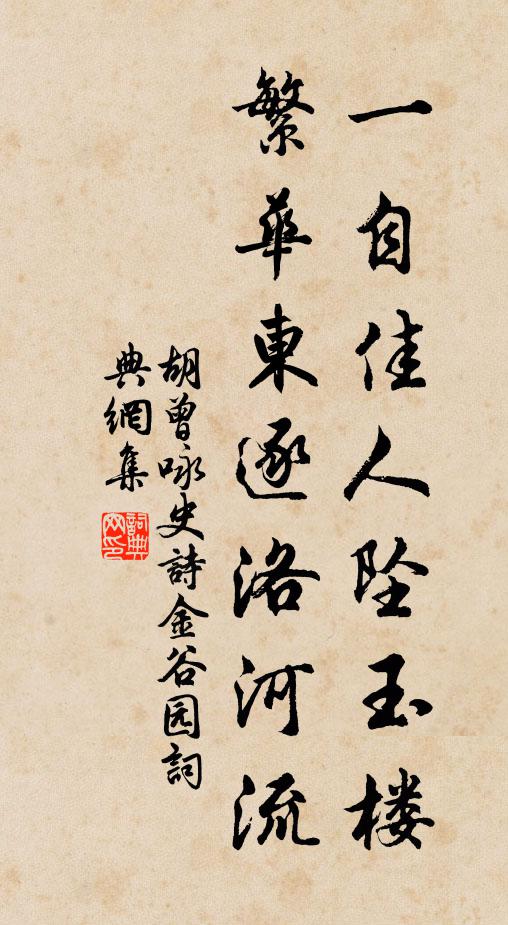 一自佳人坠玉楼
繁华東逐洛河流
胡曾咏史詩金谷园詞
典網集
詞典網印